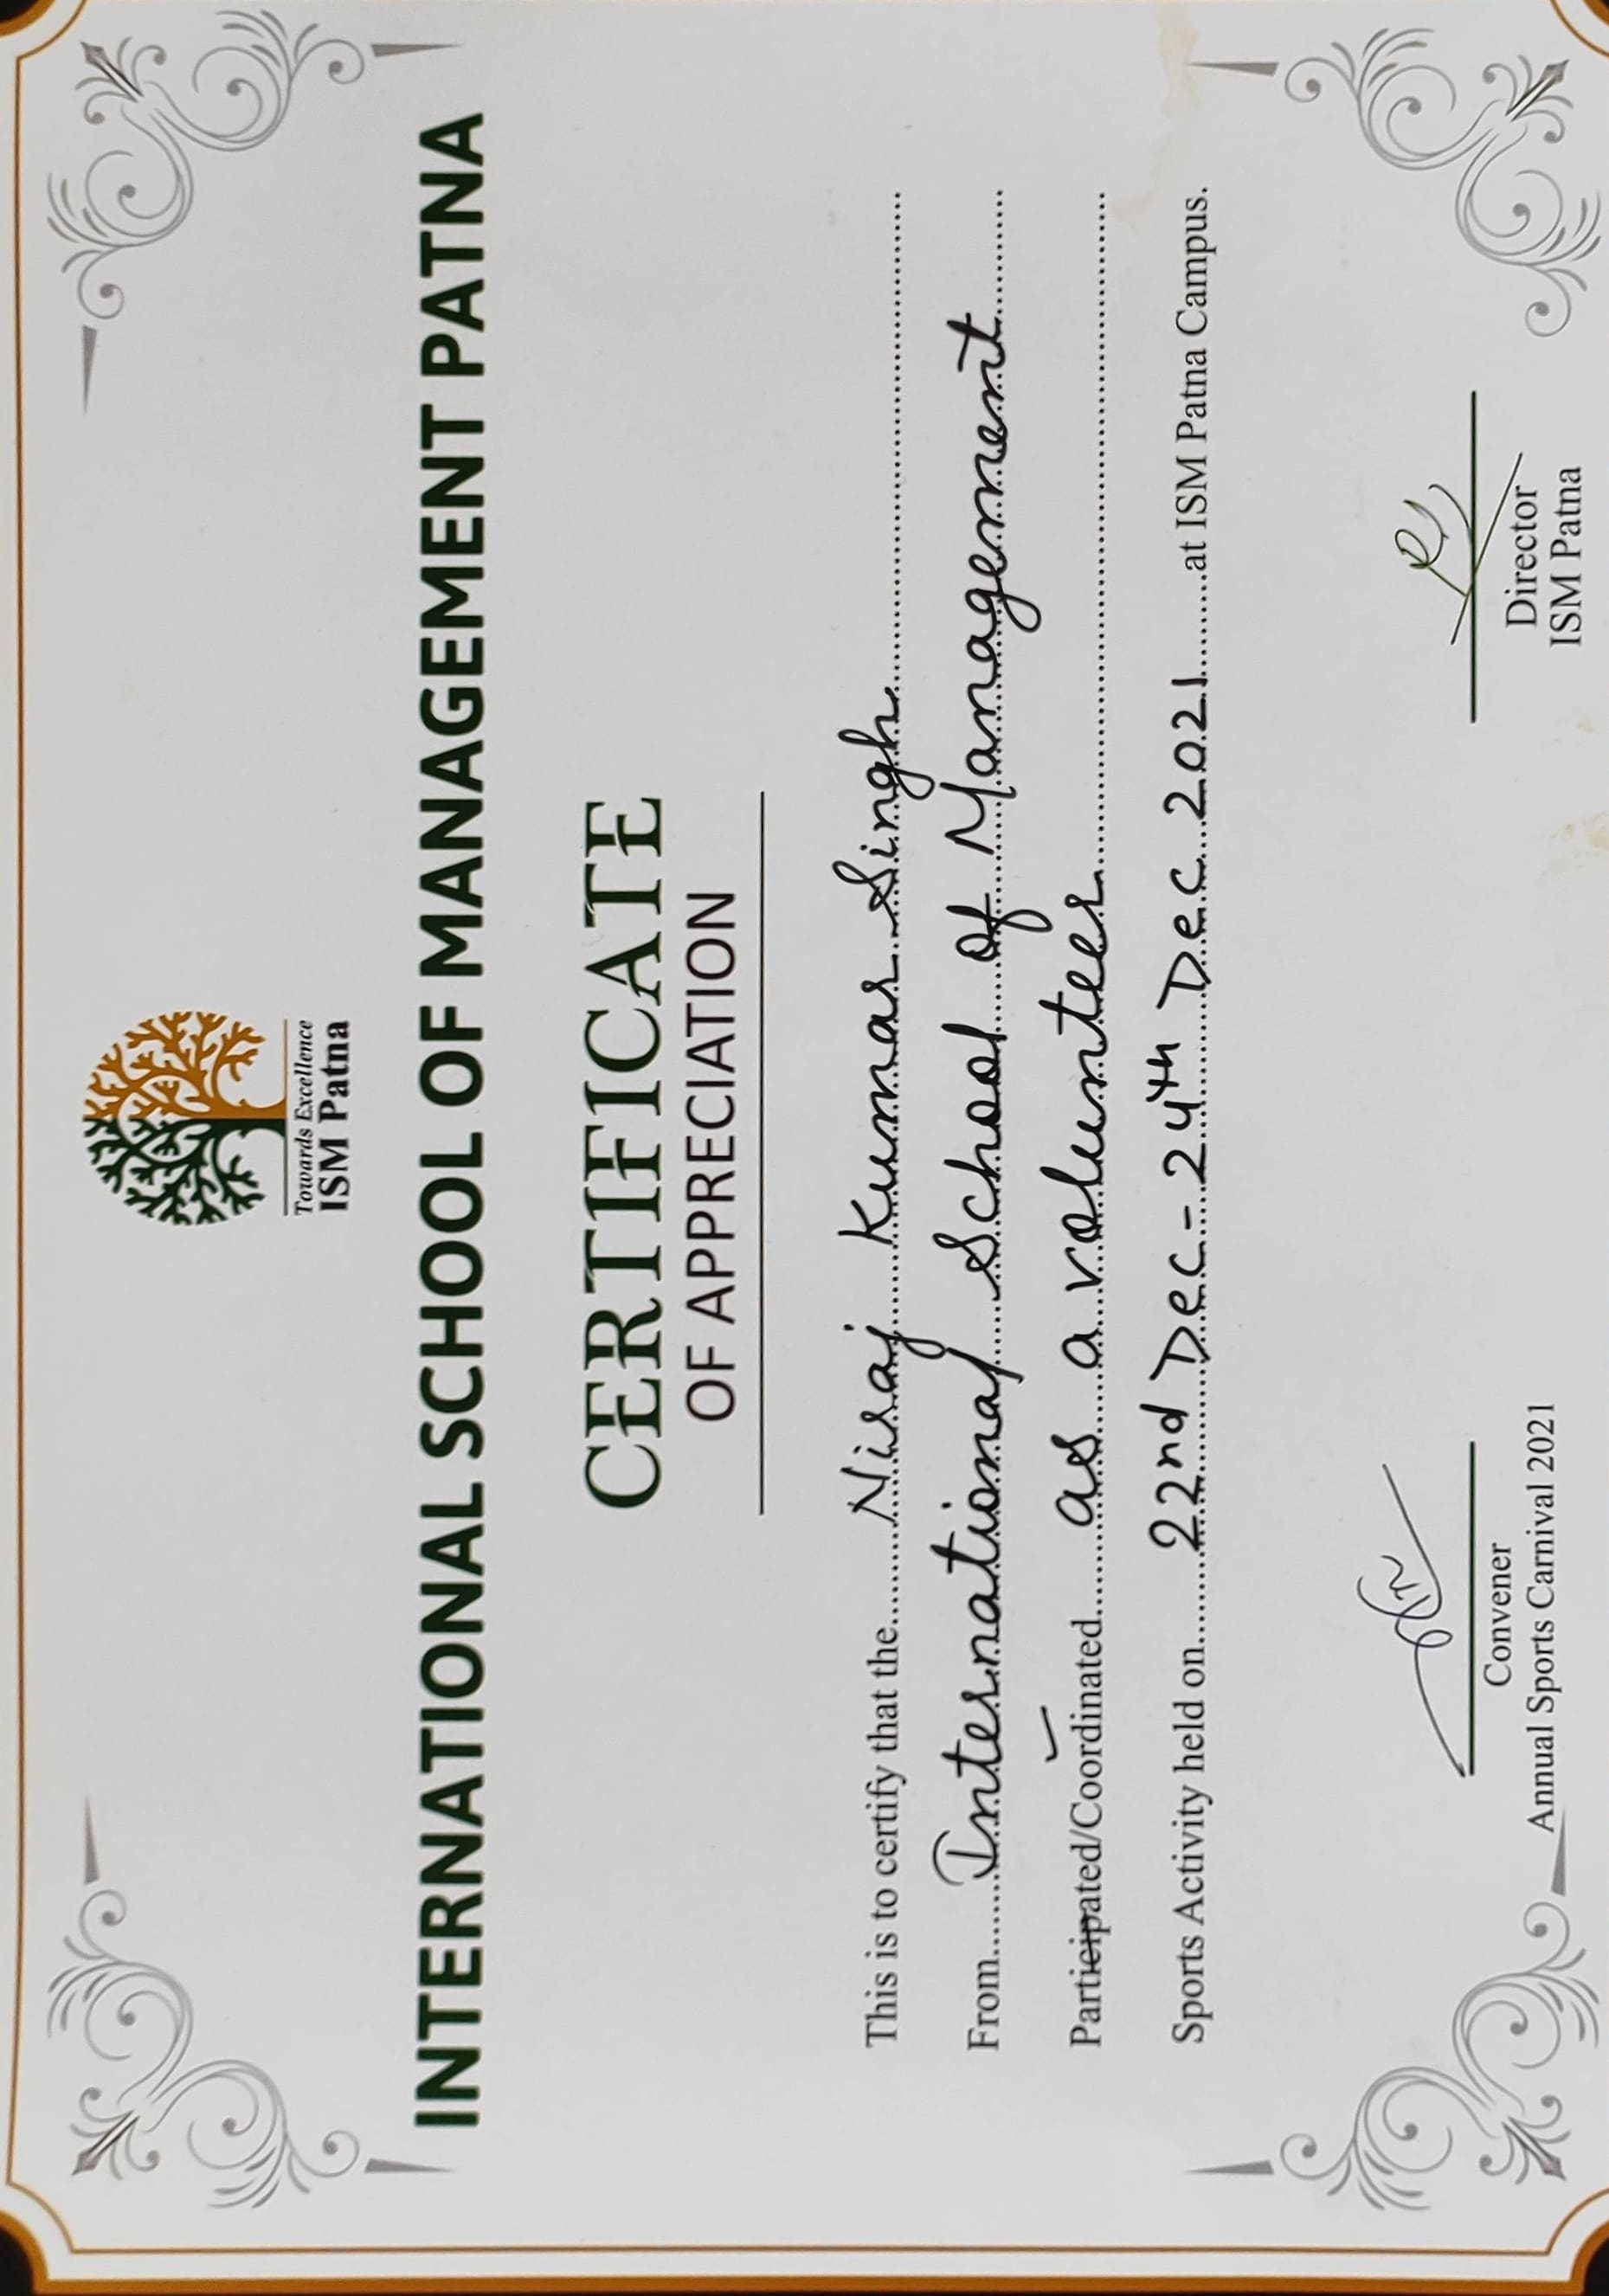 Towards Excellence
ISM Patna
INTERNATIONAL SCHOOL OF MANAGEMENT PATNA
CERTIFICATE
OF APPRECIATION
This is to certify that the........Niraj Kumar Singh........
From........International School of Management........
Participated/Coordinated........as a volunteer........
Sports Activity held on........22nd Dec - 24th Dec 2021........at ISM Patna Campus.
Convener
Annual Sports Carnival 2021
Director
ISM Patna